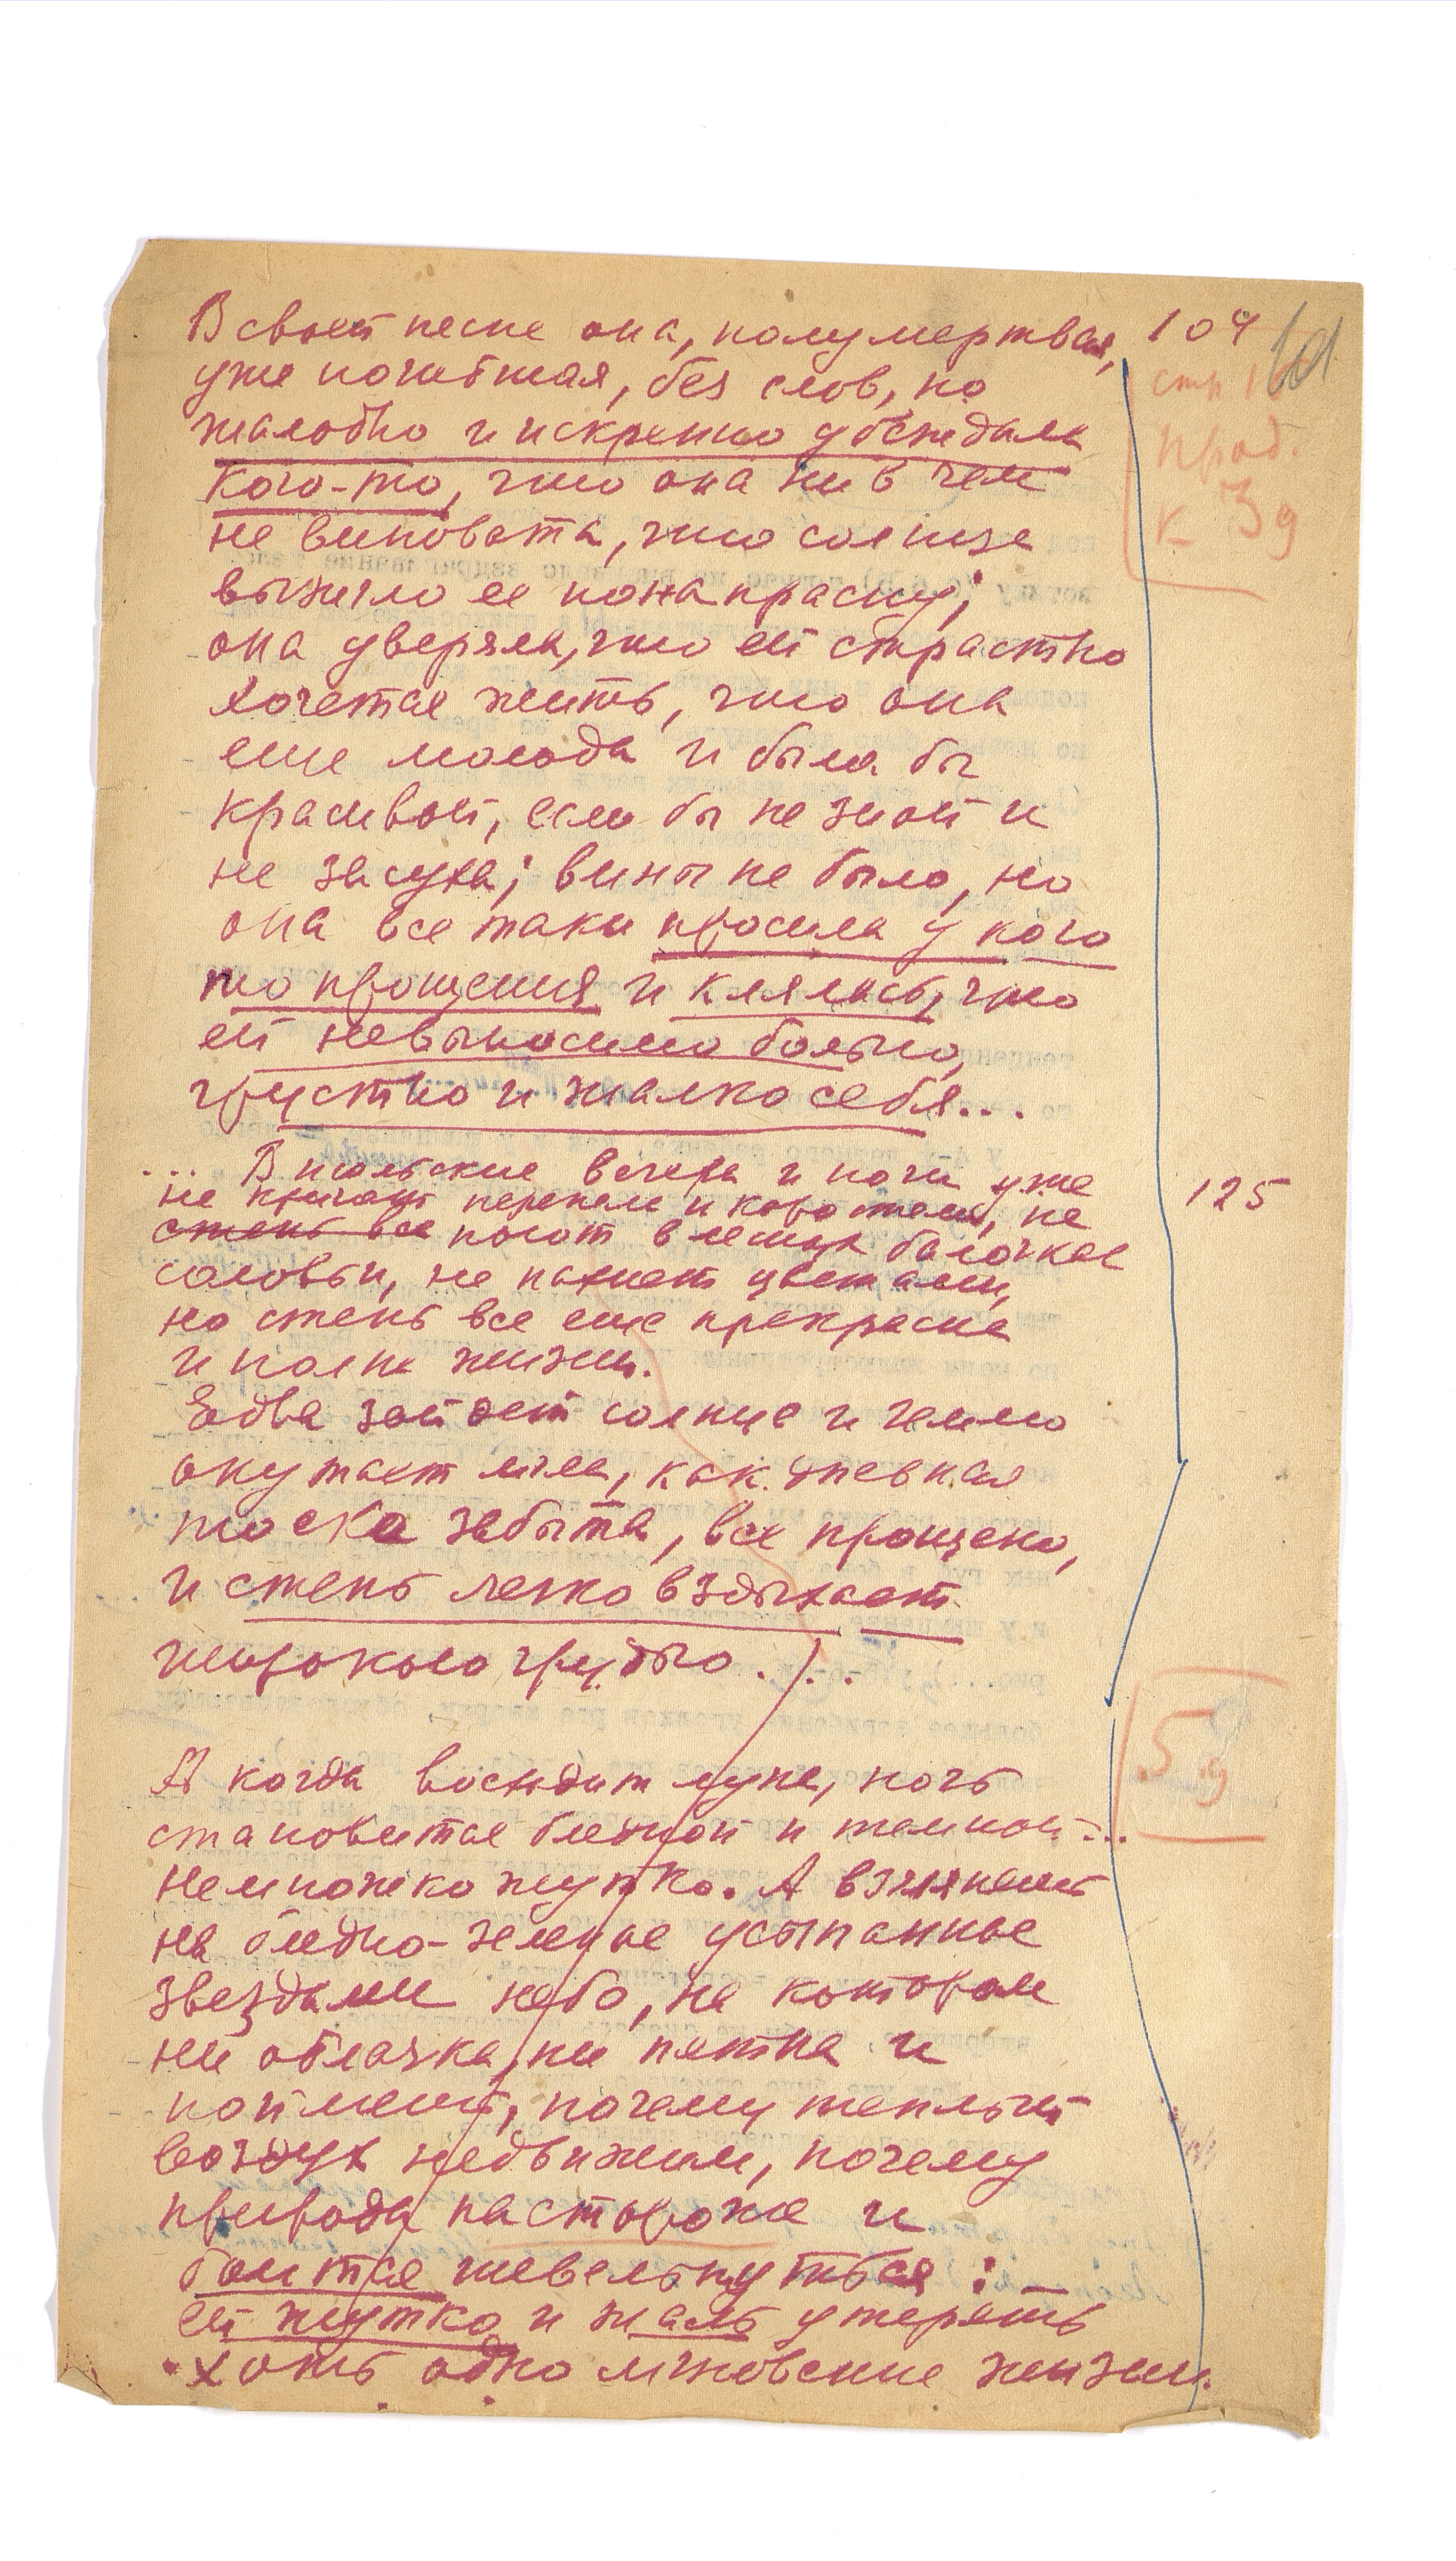 В своей песне она, полумертвая,
104
уже погибшая, без слов, но
стр 1
61
жалобно и искренно убеждала
прод.
кого-то, что она ни в чем
к 3 д
не виновата, что солнце
выжгло ее понапрасну;
она уверяла, что ей страстно
хочется жить, что она
еще молода и была бы
красивой, если бы не зной и
не засуха; вины не было, но
она все таки просила у кого
то прощения и клялась, что
ей невыносимо больно,
грустно и жалко себя...
... В июльские вечера и ночи уже
125
не кричат перепела и коростели, не
степь все поют в лесных балочках
соловьи, не пахнет цветами,
но степь все еще прекрасна
и полна жизни.
Едва зайдет солнце и землю
окутает мгла, как дневная
тоска забыта, все прощено,
и степь легко вздыхает
широкою грудью...
5 д
А когда восходит луна, ночь
становится бледной и темной...
Немножко жутко. А взглянешь
на бледно-зеленое усыпанное
звездами небо, на котором
ни облачка, ни пятна и
поймешь, почему теплый
воздух недвижим, почему
природа настороже и
боится шевельнуться:
ей жутко и жаль утерять
хоть одно мгновение жизни.